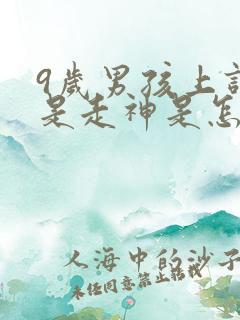 9歲男孩上
是走神是怎
人海中的沙子
未经同意禁止转载